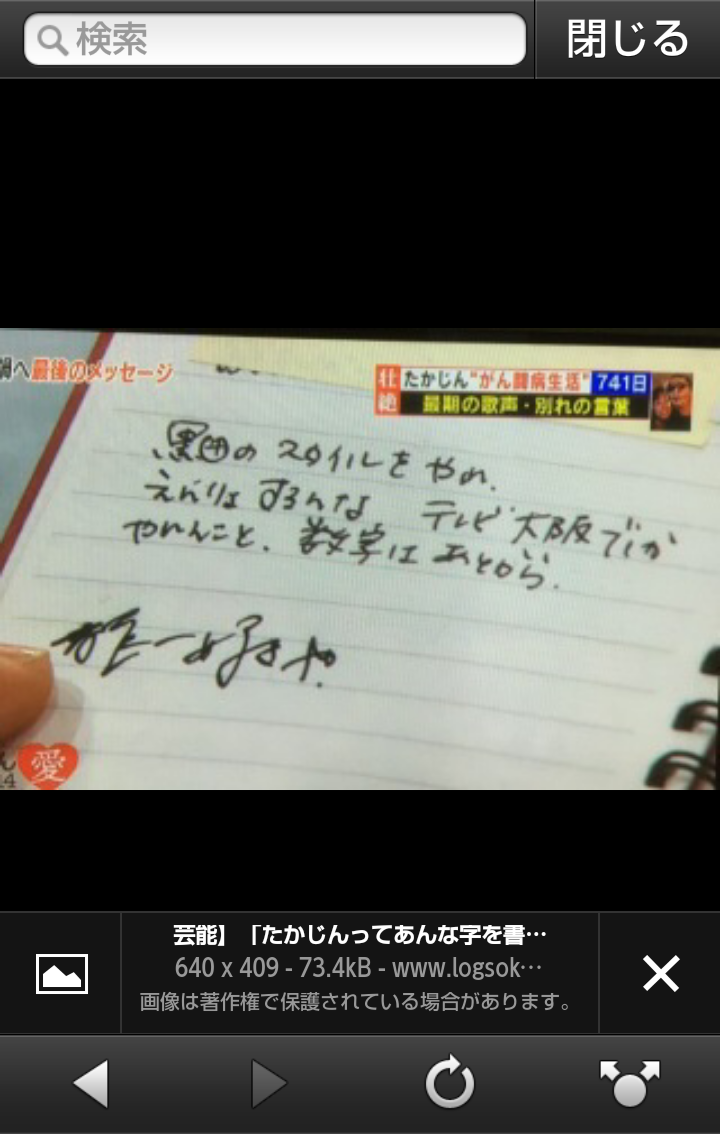 検索
閉じる
へ最後のメッセージ
壮絶
たかじん"がん闘病生活"
741日
最期の歌声・別れの言葉
のスタイルをやめ、
するんな テレビ大阪でしか
やれんこと、数字はあとから.
一好きや.
愛
芸能】「たかじんってあんな字を書…
640 x 409 - 73.4kB - www.logsok…
画像は著作権で保護されている場合があります。